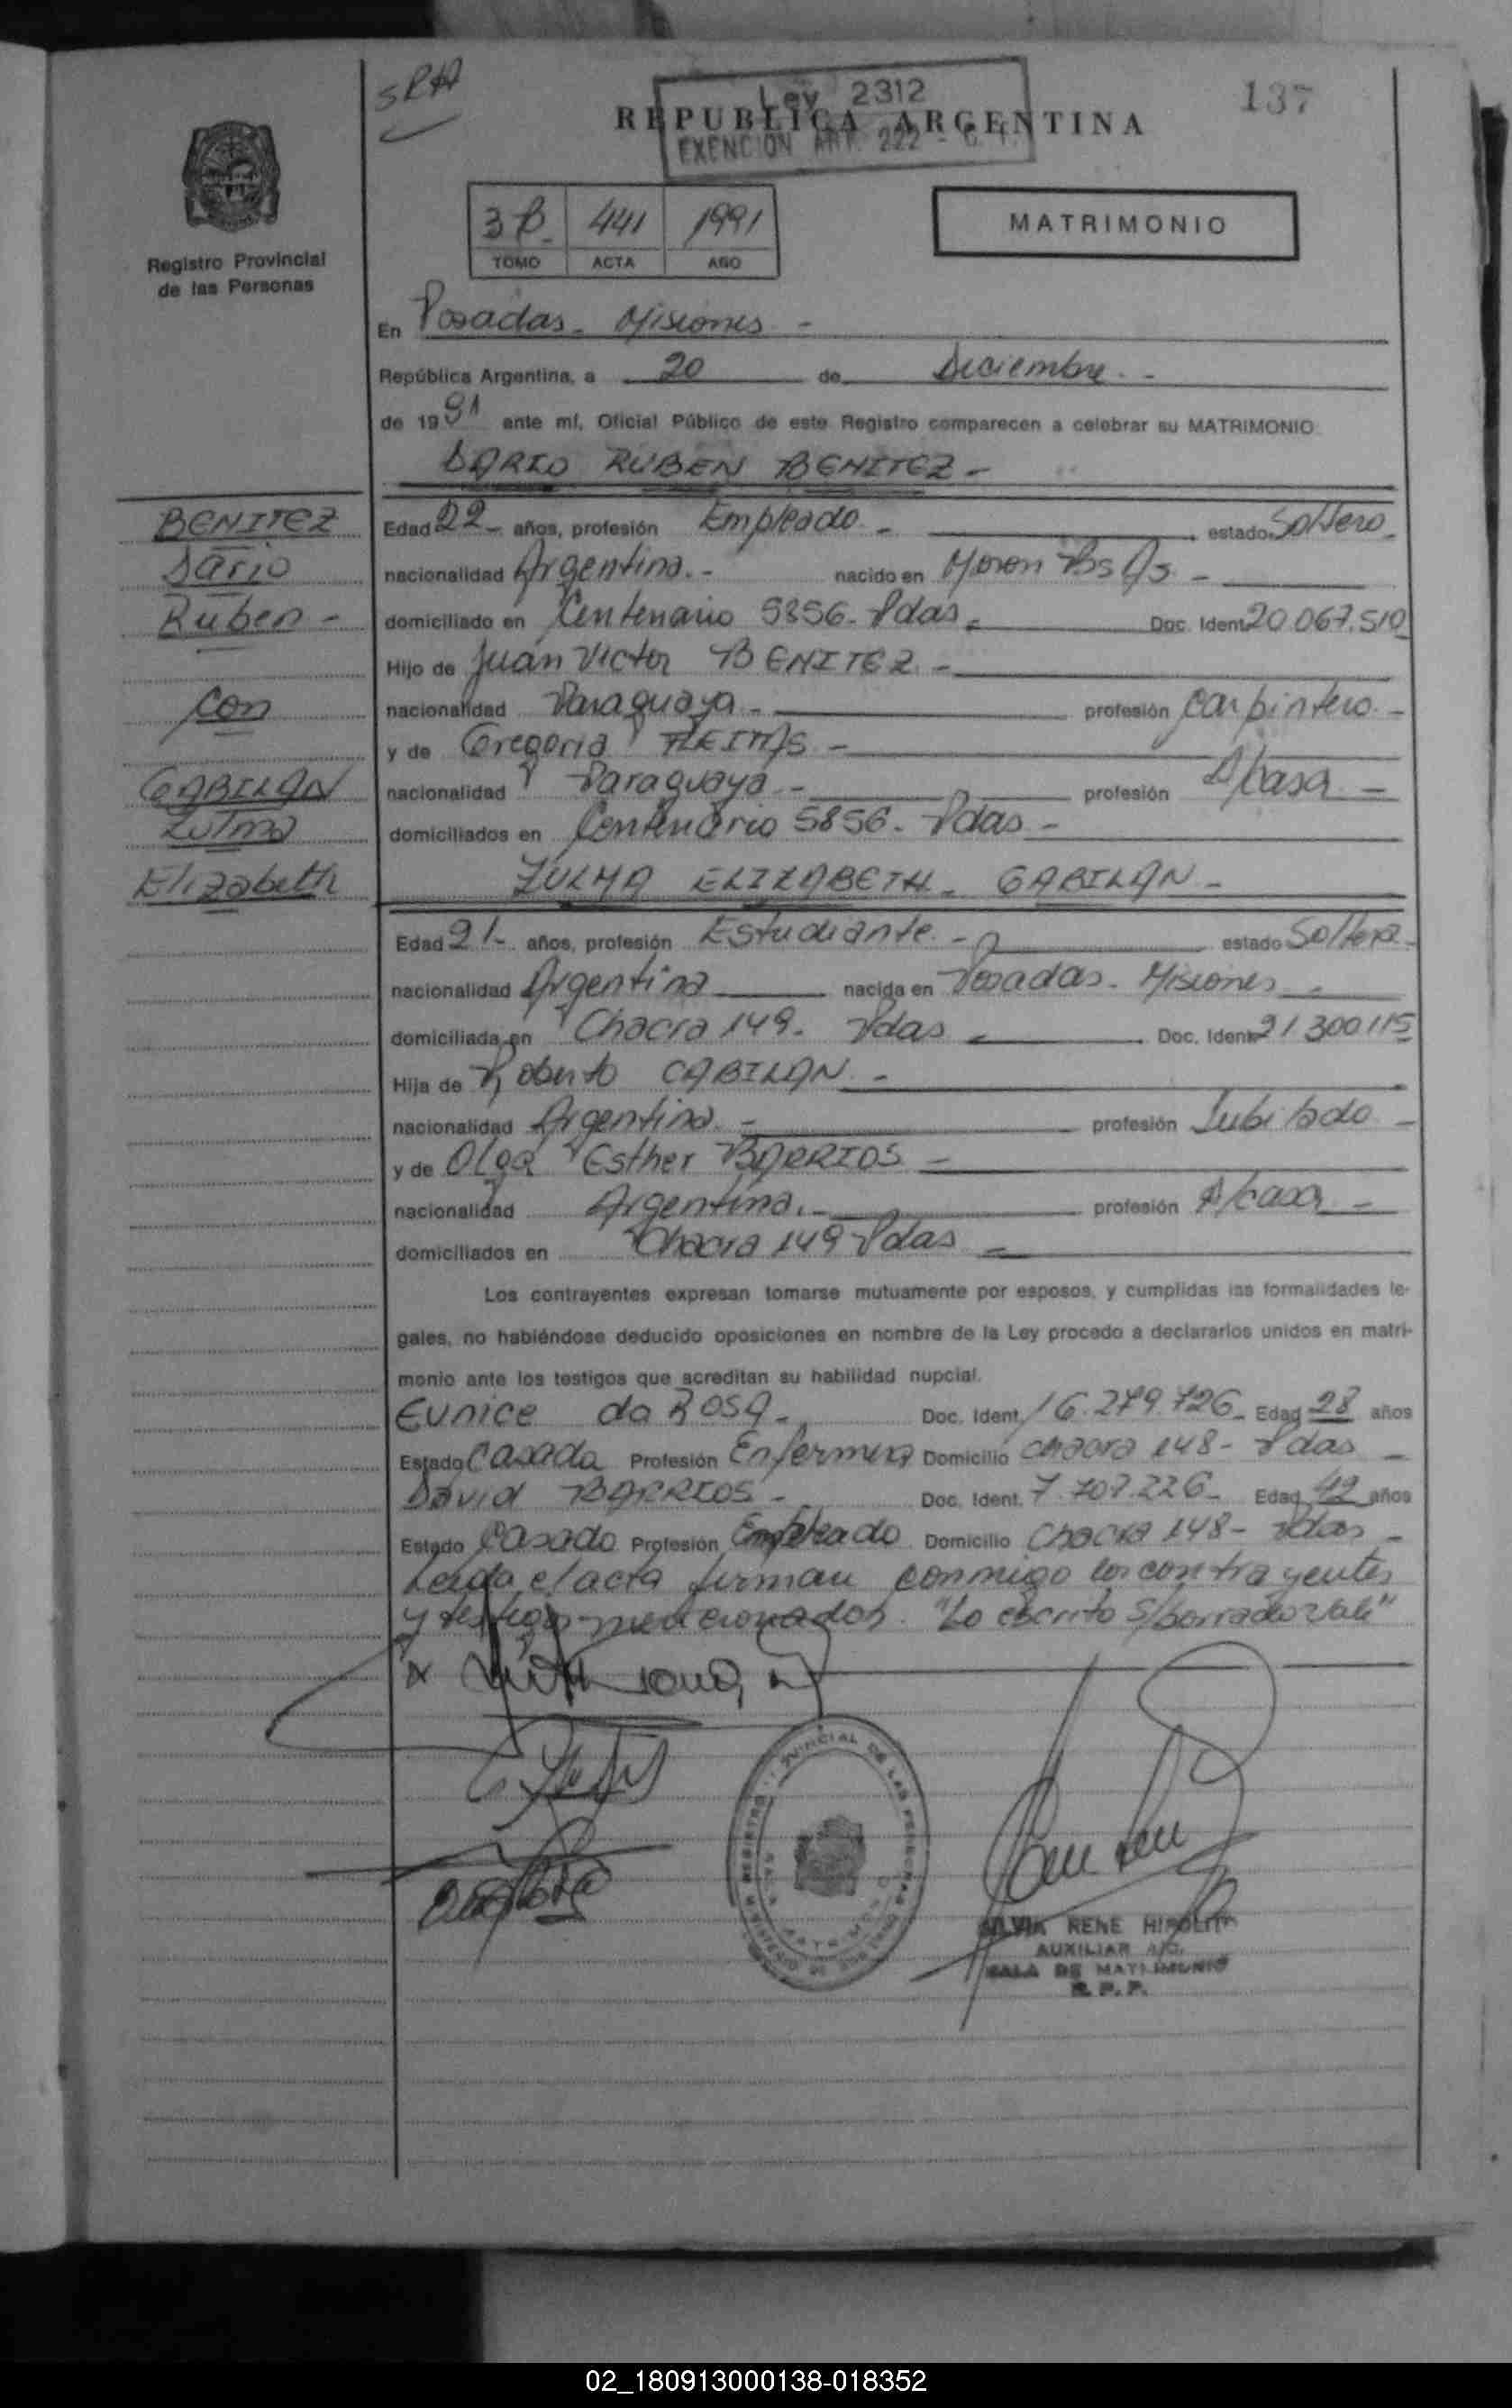 SRA
137
Ley 2312
REPUBLICA ARGENTINA
EXENCION ART. 222 - C. F.
3 B. 441 1991
TOMO ACTA AÑO
MATRIMONIO
Registro Provincial
de las Personas
En Posadas - Misiones -
República Argentina, a 20 de Diciembre. -
de 1991 ante mí, Oficial Público de este Registro comparecen a celebrar su MATRIMONIO
DARIO RUBEN BENITEZ -
BENITEZ
Dario
Ruben -
con
GABILAN
Zulma
Elizabeth
Edad 22 - años, profesión Empleado - estado Soltero -
nacionalidad Argentina. - nacido en Moron Bs As -
domiciliado en Centenario 5856 - Pdas - Doc. Ident. 20.067.510
Hijo de Juan Victor BENITEZ -
nacionalidad Paraguaya - profesión carpintero -
y de Gregoria
nacionalidad Paraguaya - profesión A/casa -
domiciliados en Centenario 5856 - Pdas -
ZULMA ELIZABETH - GABILAN -
Edad 21 - años, profesión Estudiante - estado Soltera -
nacionalidad Argentina nacida en Posadas - Misiones -
domiciliada en Chacra 149 - Pdas - Doc. Ident. 21.300.115
Hija de Roberto GABILAN -
nacionalidad Argentina - profesión Jubilado -
y de Olga Esther BARRIOS -
nacionalidad Argentina. - profesión A/casa -
domiciliados en Chacra 149 Pdas -
Los contrayentes expresan tomarse mutuamente por esposos, y cumplidas las formalidades le-
gales, no habiéndose deducido oposiciones en nombre de la Ley procedo a declararlos unidos en matri-
monio ante los testigos que acreditan su habilidad nupcial.
Eunice da ROSA - Doc. Ident. 16.279.726 - Edad 28 años
Estado Casada Profesión Enfermera Domicilio Chacra 148 - Pdas -
David BARRIOS - Doc. Ident. 7.707.226 - Edad 42 años
Estado Casado Profesión Empleado Domicilio Chacra 148 - Pdas -
Leida el acta firman conmigo los contrayentes
y testigos mencionados. "Lo escrito s/borrado vale"
SILVIA RENE HIPOLITO
AUXILIAR A/C.
SALA DE MATRIMONIO
R. P. P.
02_180913000138-018352